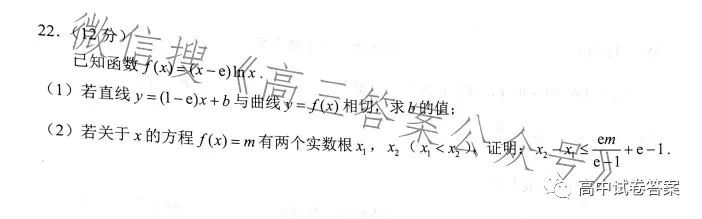 22.(12分)
已知函数 f(x)=(x−e)lnx.
(1)若直线 y=(1−e)x+b 与曲线 y=f(x) 相切,求 b 的值;
(2)若关于 x 的方程 f(x)=m 有两个实数根 x₁,x₂(x₁<x₂),证明:x₂−x₁≤em/(e−1)+e−1.
微信搜《高三答案公众号》
高中试卷答案